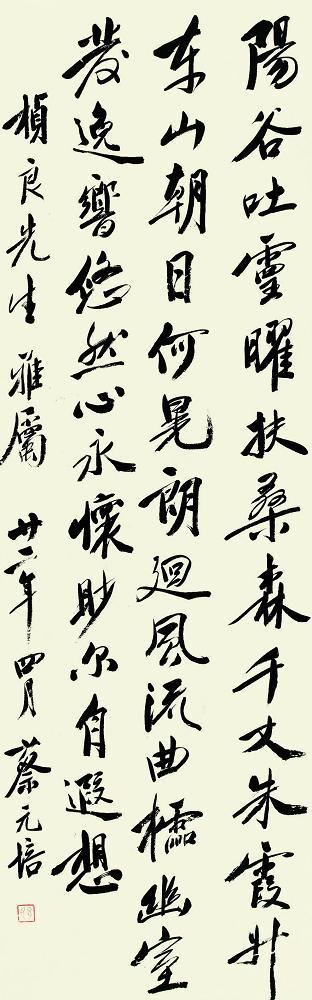 陽谷吐靈曜扶桑森千丈朱霞升
东山朝日何晃朗迴風流曲櫺幽室
發逸響悠然心永懷眇尔自遐想
楨良先生 雅屬 廿二年四月 蔡元培